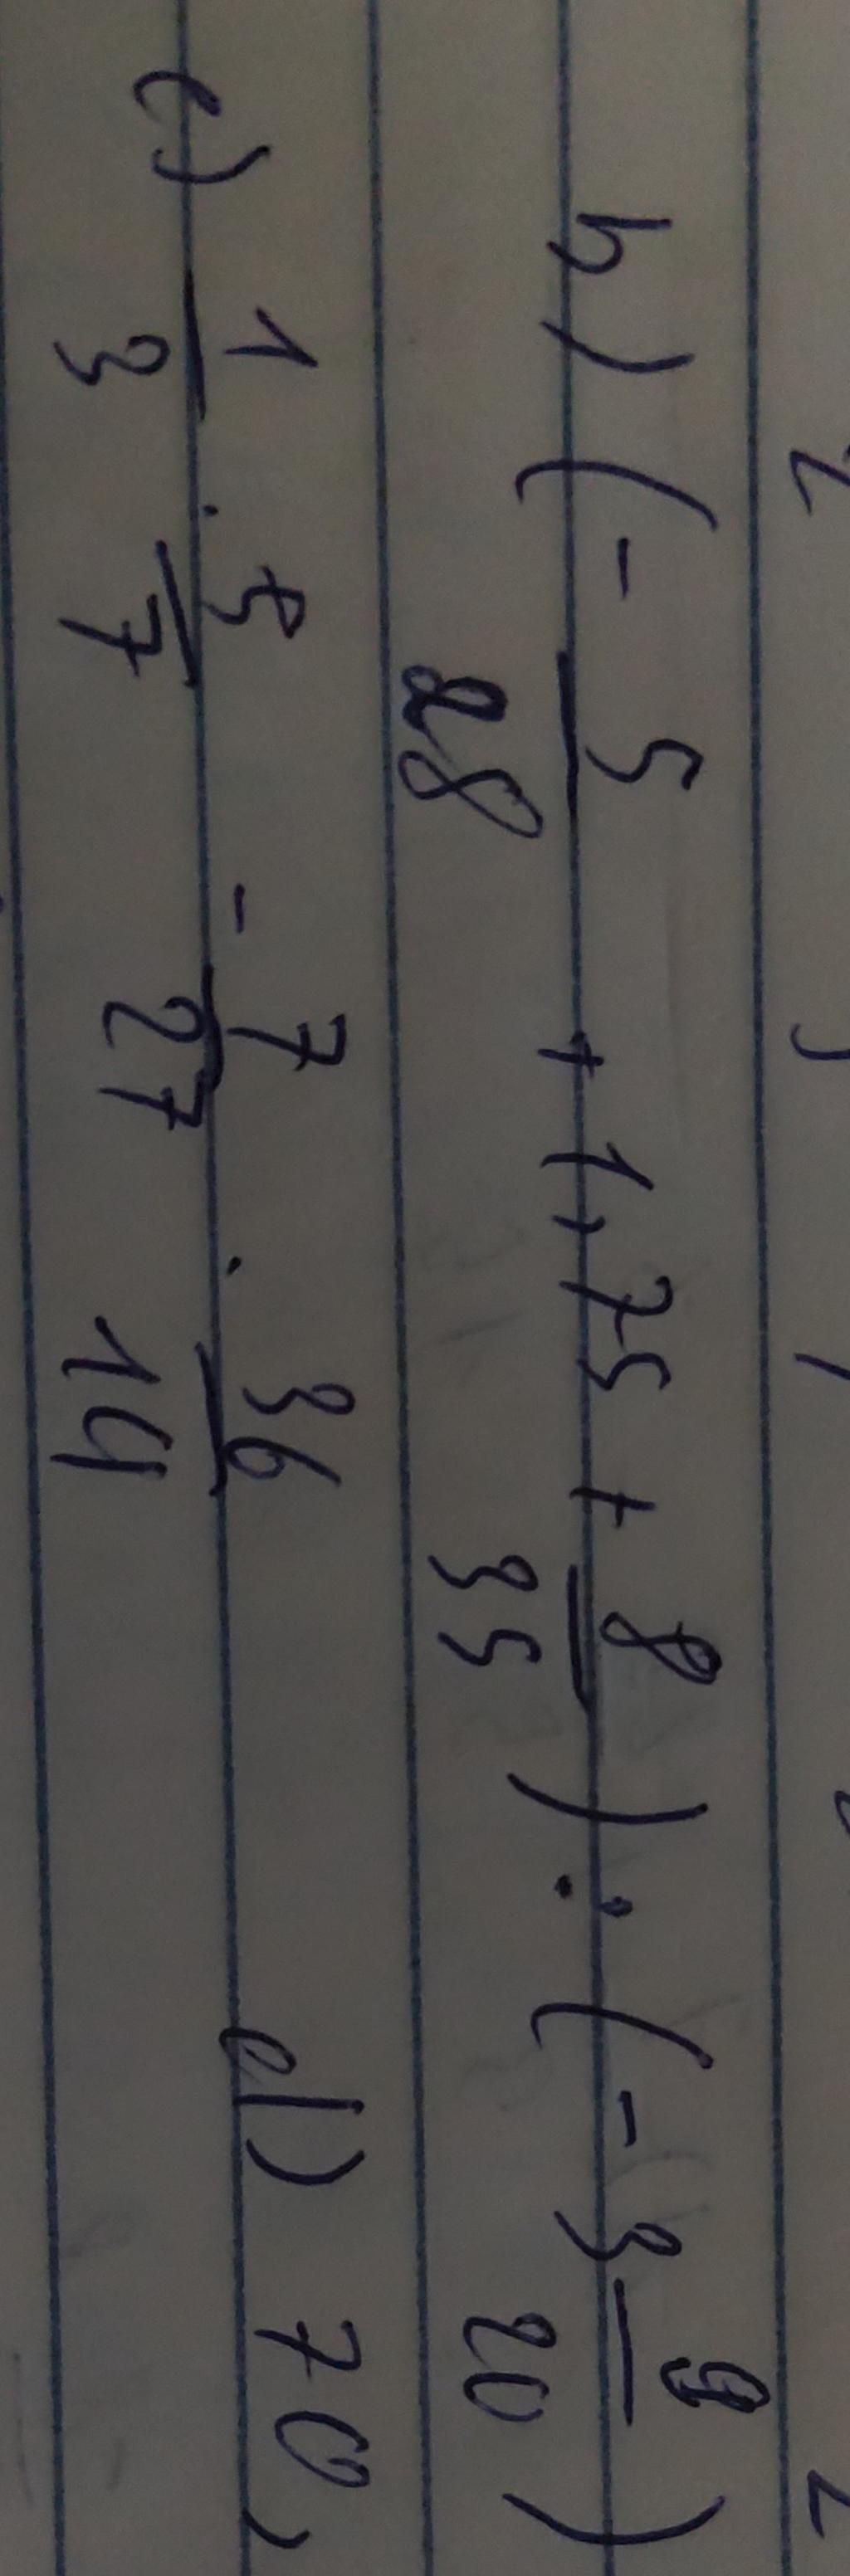 b) (- 5/28 + 1,75 + 8/35) : (- 3 9/20)
c) 1/3 . 5/7 - 7/27 . 36/14 d) 70,